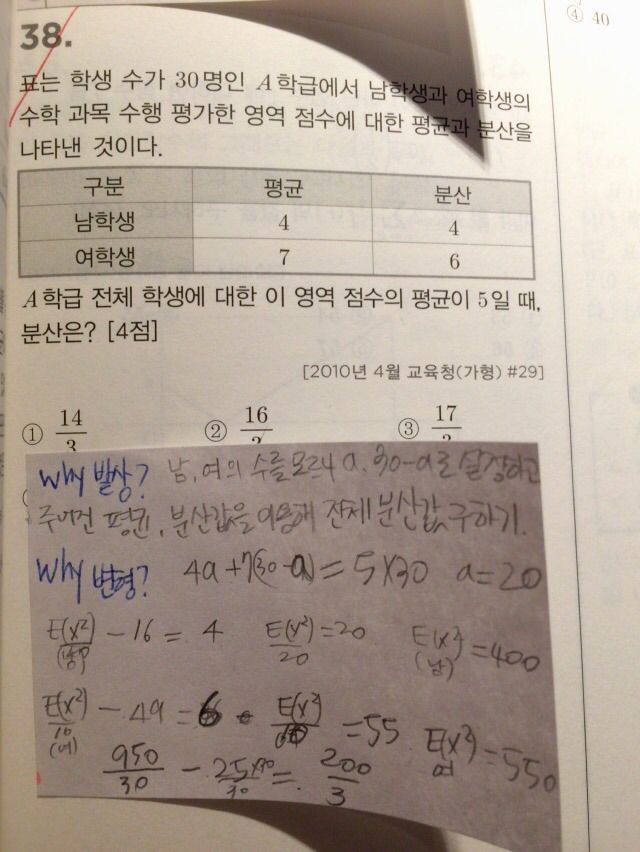 ④ 40
38.
표는 학생 수가 30명인 A학급에서 남학생과 여학생의
수학 과목 수행 평가한 영역 점수에 대한 평균과 분산을
나타낸 것이다.
구분 평균 분산
남학생 4 4
여학생 7 6
A학급 전체 학생에 대한 이 영역 점수의 평균이 5일 때,
분산은? [4점]
[2010년 4월 교육청(가형) #29]
① 14/3 ② 16/3 ③ 17/3
Why 발상? 남, 여의 수를 모르니 a, 30-a로 설정하고
주어진 평균, 분산값을 이용해 전체 분산값 구하기.
Why 변형? 4a+7(30-a)=5×30 a=20
E(x²)/20 (남) - 16 = 4 E(x²)/20 = 20 E(x²) (남) = 400
E(x²)/10 (여) - 49 = 6 E(x²)/10 = 55 E(x²) 여 = 550
950/30 - 25×30/30 = 200/3